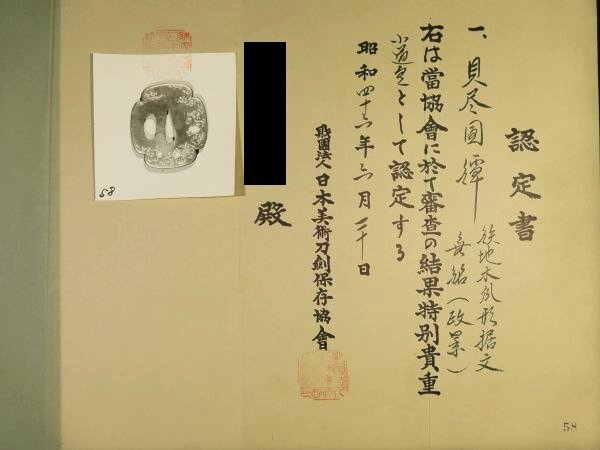 認定書
一、貝尽図鐔
鉄地木瓜形据文
無銘(政景)
右は當協會に於て審査の結果特別貴重
小道具として認定する
昭和四十六年六月二十日
財團法人日本美術刀劍保存協會
殿
58
58